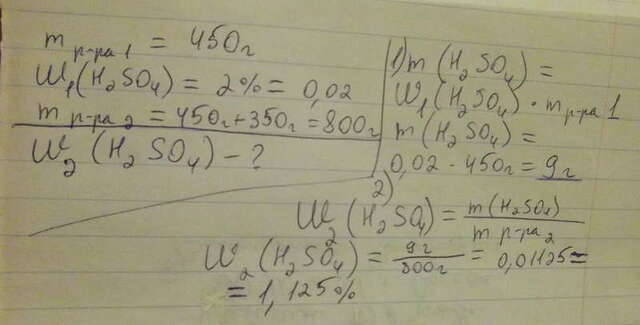 m р-ра 1 = 450г
W₁(H₂SO₄) = 2% = 0,02
m р-ра 2 = 450г+350г=800г
W₂(H₂SO₄) - ?
1) m(H₂SO₄) =
W₁(H₂SO₄) · m р-ра 1
m(H₂SO₄) =
0,02 · 450г = 9г
2)
W₂(H₂SO₄) = m(H₂SO₄) / m р-ра 2
W₂(H₂SO₄) = 9г / 800г = 0,01125 =
= 1,125%